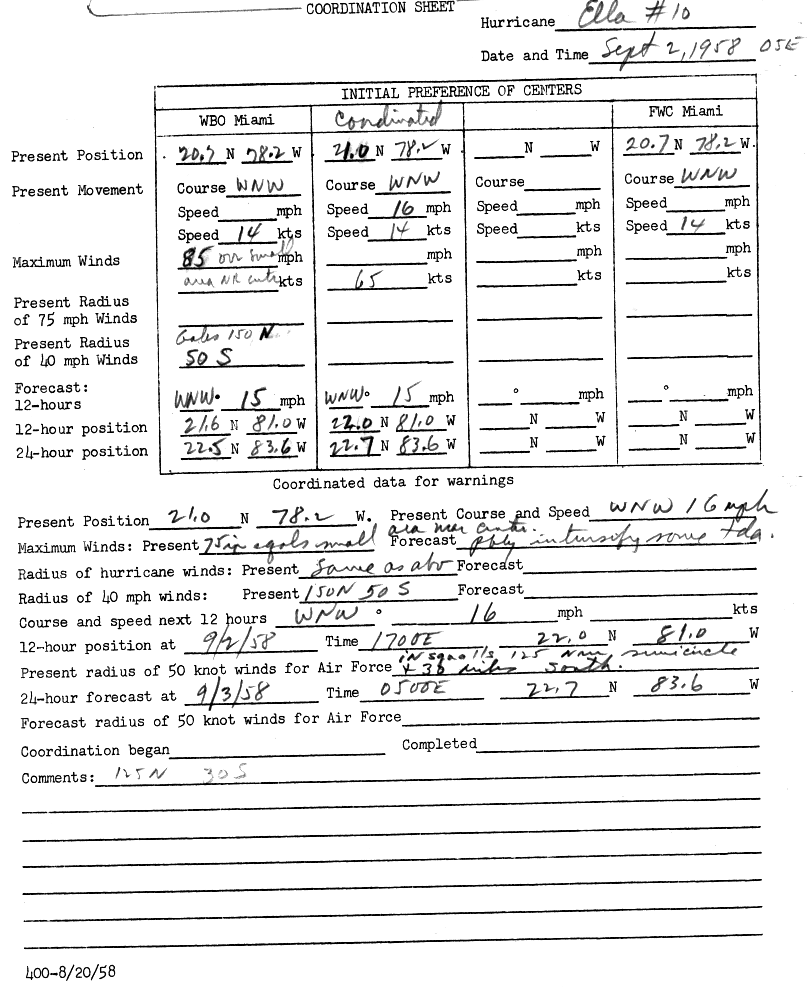 COORDINATION SHEET
Hurricane Ella #10
Date and Time Sept 2, 1958 05E
INITIAL PREFERENCE OF CENTERS
WBO Miami Coordinated FWC Miami
Present Position 20.7 N 78.2 W 21.0 N 78.2 W N W 20.7 N 78.2 W.
Present Movement Course WNW Course WNW Course Course WNW
Speed mph Speed 16 mph Speed mph Speed mph
Speed 14 kts Speed 14 kts Speed kts Speed 14 kts
Maximum Winds 85 ovr small mph mph mph mph
area NR cntr kts 65 kts kts kts
Present Radius
of 75 mph Winds
Present Radius Gales 150 N
of 40 mph Winds 50 S
Forecast:
12-hours WNW° 15 mph WNW° 15 mph ° mph ° mph
12-hour position 21.6 N 81.0 W 22.0 N 81.0 W N W N W
24-hour position 22.5 N 83.6 W 22.7 N 83.6 W N W N W
Coordinated data for warnings
Present Position 21.0 N 78.2 W. Present Course and Speed WNW 16 mph
area near center.
Maximum Winds: Present 75 in sqals small Forecast pbly intensify some tda.
Radius of hurricane winds: Present Same as abv Forecast
Radius of 40 mph winds: Present 150N 50 S Forecast
Course and speed next 12 hours WNW ° 16 mph kts
12-hour position at 9/2/58 Time 1700E 22.0 N 81.0 W
in squalls 125 semicircle
Present radius of 50 knot winds for Air Force + 30 miles South.
24-hour forecast at 9/3/58 Time 0500E 22.7 N 83.6 W
Forecast radius of 50 knot winds for Air Force
Coordination began Completed
Comments: 125N 30S
400-8/20/58